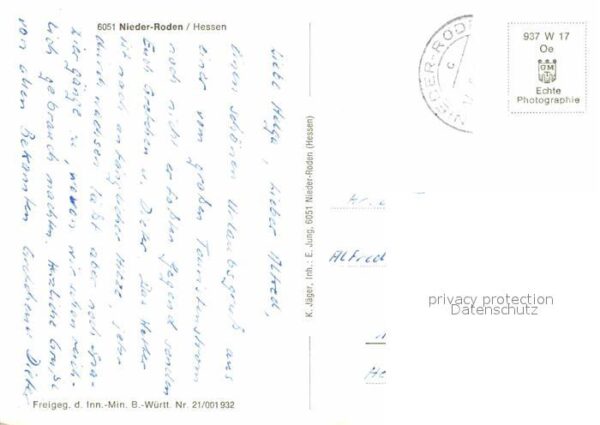 6051 Nieder-Roden / Hessen
Liebe Helga, lieber Alfred,
einen schönen Urlaubsgruß aus
einer vom großen Touristenstrom
noch nicht erfaßten Gegend senden
Euch Gretchen u. Dieter. Das Wetter
ist nach anfänglicher Hitze, sehr
durchwachsen, läßt aber noch Spa-
ziergänge zu, wovon wir schon reich-
lich gebrauch machten. Herzliche Grüße
von allen Bekannten Gretchen u. Dieter
Freigeg. d. Inn.-Min. B.-Württ. Nr. 21/001932
K. Jäger, Inh.: E. Jung, 6051 Nieder-Roden (Hessen)
NIEDER-ROD
937 W 17
Oe
Echte
Photographie
Alfred
privacy protection
Datenschutz